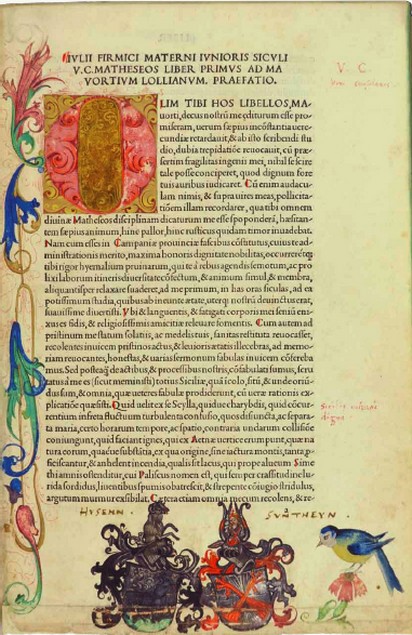 IVLII FIRMICI MATERNI IVNIORIS SICVLI
V.C. MATHESEOS LIBER PRIMVS AD MA
VORTIVM LOLLIANVM. PRAEFATIO.
V. C.
OLIM TIBI HOS LIBELLOS, MA-
uorti, decus nostrũ me dicturum esse pro
miseram, uerum sæpius incõstantia uere-
cundiæ retardauit, & ab isto scribendi stu
dio, dubia trepidatiõe reuocauit, cũ præ-
sertim fragilitas ingenii mei, nihil se scire
tale posse conciperet, quod dignum fore
tuis auribus iudicaret. Cũ enim audacu-
lam nimis, & supra uires meas, pollicita
tiõem illam recordarer, qua tibi omnem
diuinæ Matheseos disciplinam dicaturum me esse spoponderã, hæsitan-
tem sæpius animum, hinc pallor, hinc rusticus quidam timor inuadebat.
Nam cum esses in Campaniæ prouinciæ fascibus cõstitutus, cuius te ad-
ministrationis merito, maxima honoris dignitate nobilitas,
tibi rigor hyemalium pruinarum, qui te a rebus agendis semotum, ac pro
lixi laborum itineris diuersitate cõfectum, & animum simul, & membra,
aliquantisper relaxare suaderet, ad me primum, in has oras siculas, ad ex
potissimum studia, quibus ab ineunte ætate, uterq nostrũ deuinctus erat,
suauissime diuertisti. Vbi & languentis, & fatigati corporis mei seniũ en-
xus es fidis, & religiosissimis amicitiæ releuare fomentis. Cum autem ad
pristinum me statum solatiis, ac medelis tuis, sanitas restituta reuocasset,
recolentes inuicem pristinos actus, & lexioris ætatis illecebras, ad memo-
riam reuocantes, honestas, & uarias sermonum fabulas inuicem cõfereba
mus. Sed posteaq̃ de actibus, & processibus nostris, cõfabulati sumus, scru
tatus a me es (si scut meministi) totius Siciliæ, quã icolo, sitũ, & unde oriũ-
dus sum, & omnia, quæ ueteres fabulæ prodiderunt, cũ ueræ rationis ex-
plicatiõe quæsisti. Quid uelit ex se Scylla, quidue charybdis, quid cõcur-
rentium infreta fluctuum turbulenta confusio, quos disiuncta, ac separa-
ta maria, certo horarum tempore, ac spatio, contraria undarum collisiõe
coniungunt, quid faciant ignes, qui ex Aetnæ uertice erumpunt, quæ na
tura eorum, quæ due substãtia, ex qua origine, sine iactura montis, tanta p̃
ficiscantur, & anhelent incendia, qualis sit lacus, qui prope alueum Sime
thi amnis ostenditur, cui Paliscus nomen est, qui semper crassitudine lu-
rida sordidus, liuentibus spumis obatrescit, & strepente cõiugio stridulus,
argutum murmur exsibilat. Cætera etiam omnia mecum recolens, & re-
HUSENN.
SUNTHEYN.